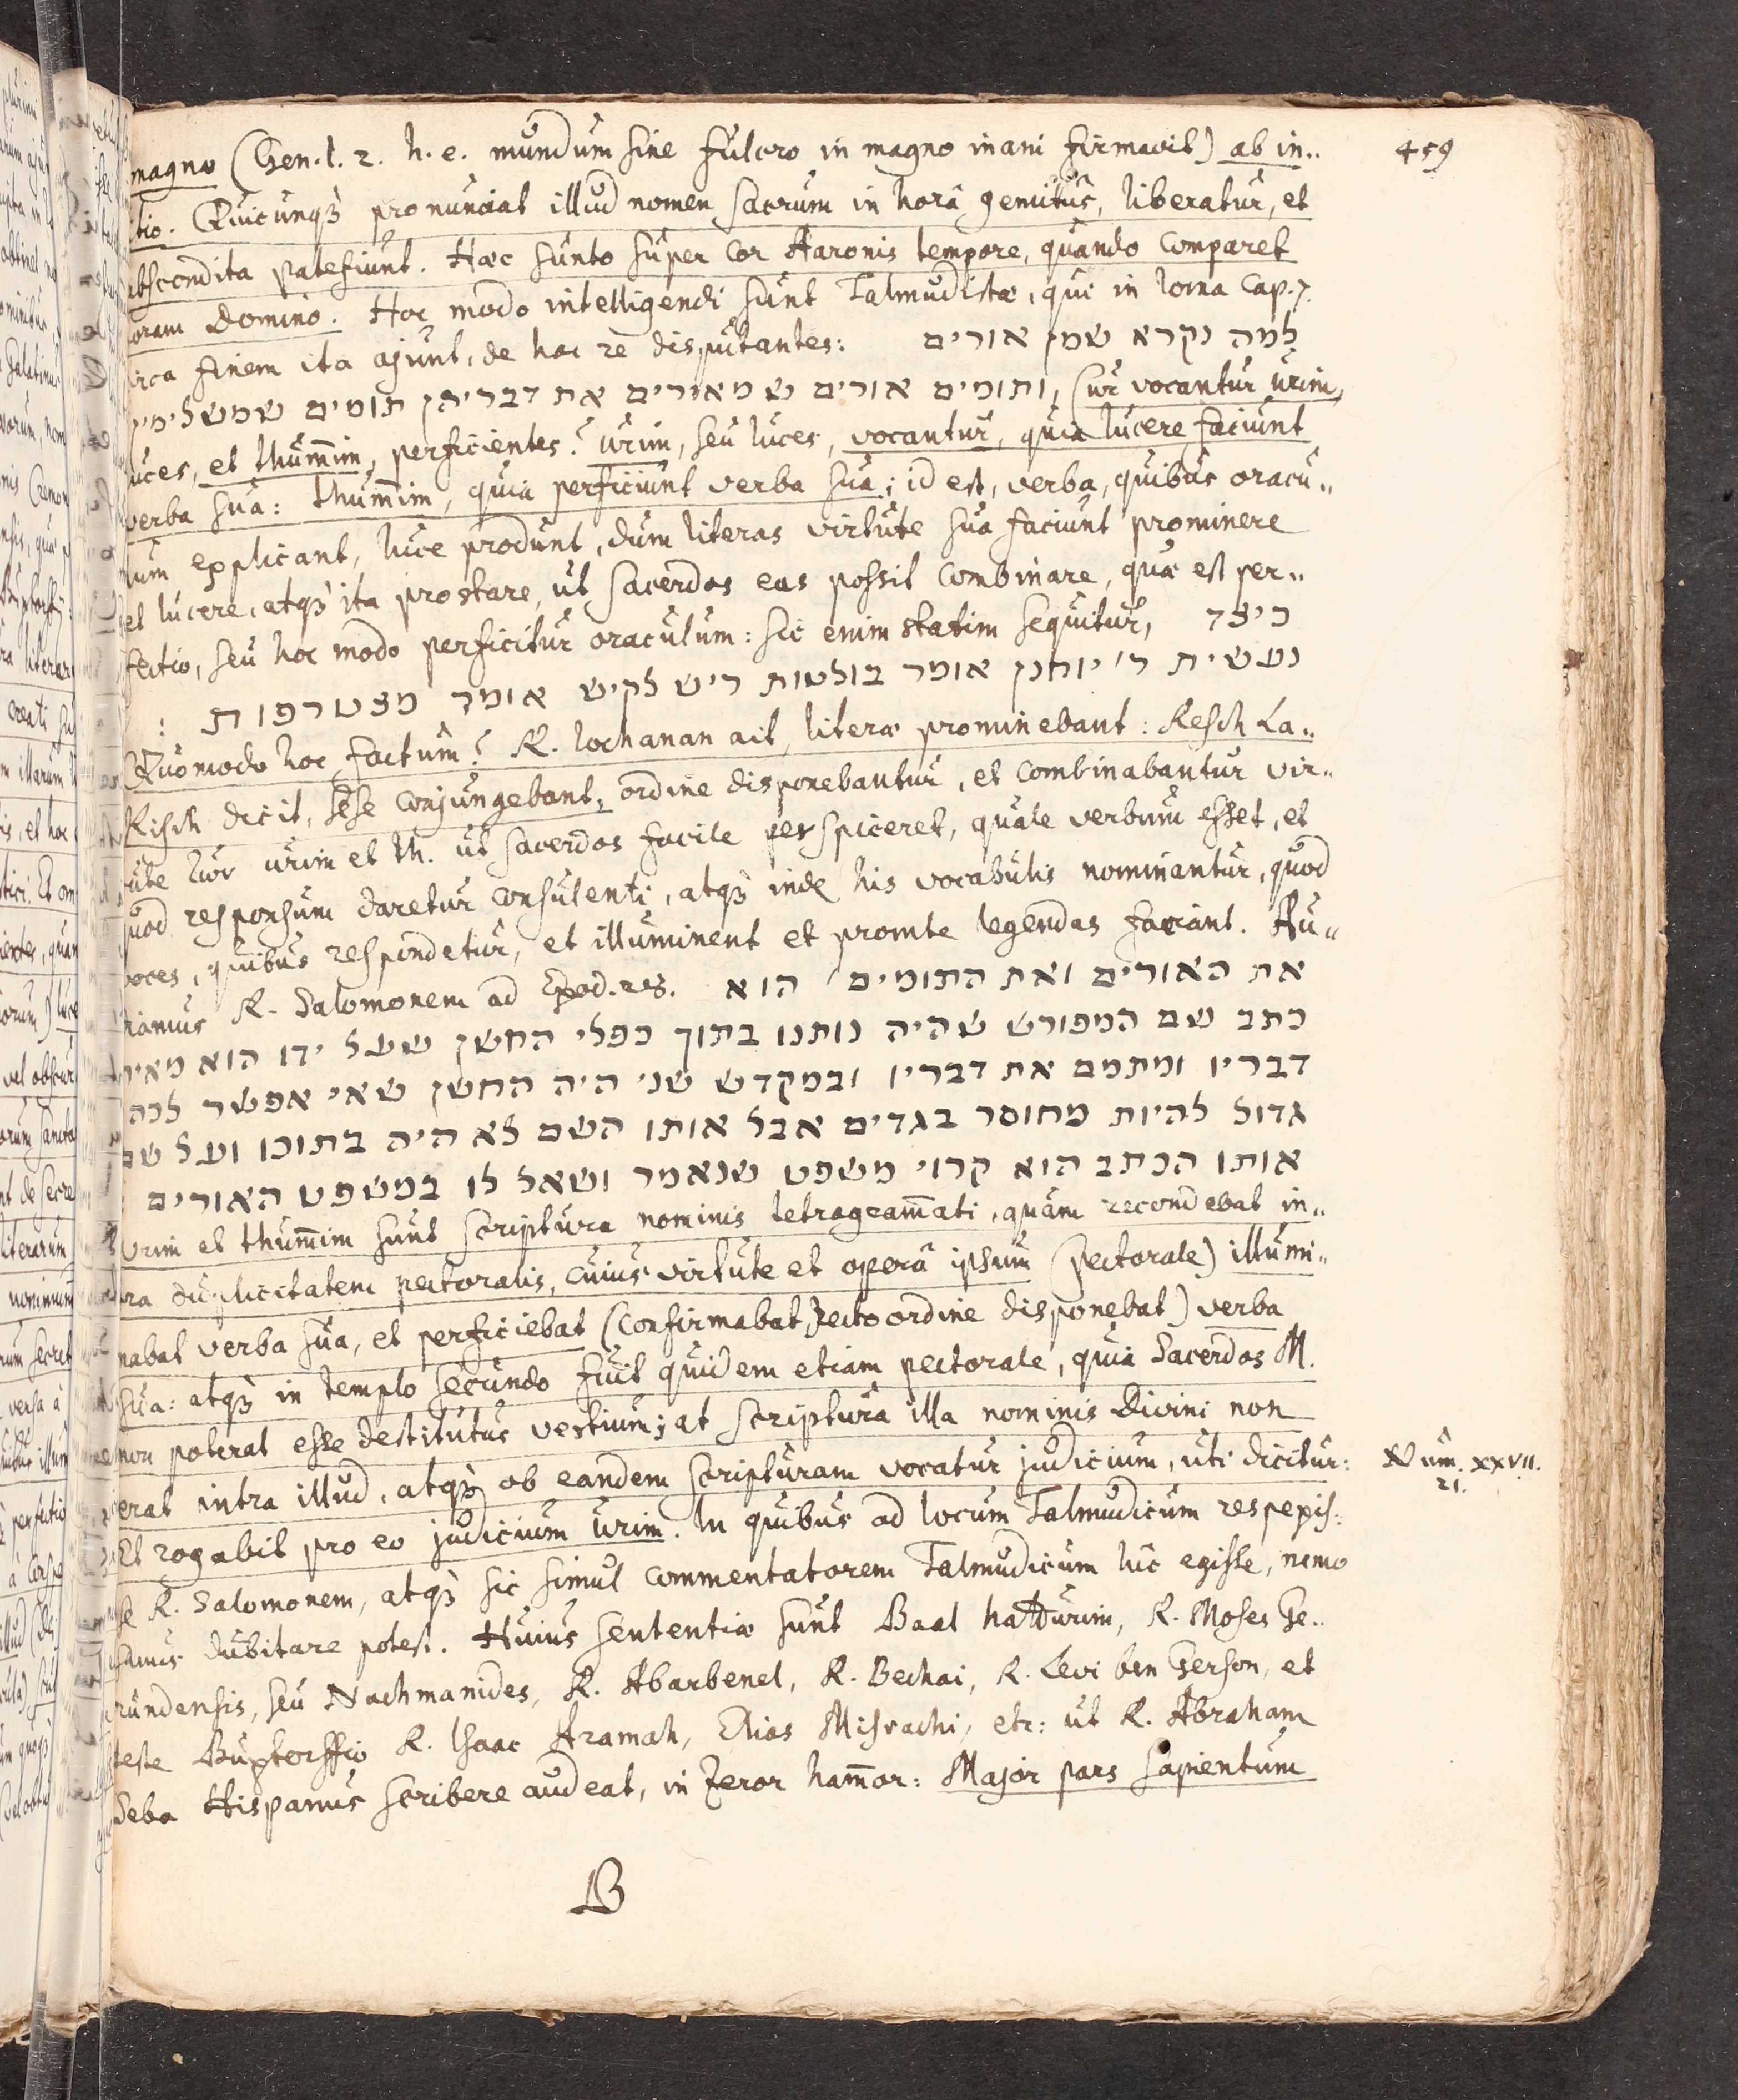 459
magno (Gen. I. 2. h. e. mundum sine fulcro in magno inani firmavit) ab in..
itio. Quicunq3 pronunciat illud nomen sacrum in horâ gemitus, liberatur, et
abscondita patefiunt. Haec sunto super Cor Aaronis tempore, quando Comparet
coram Domino. Hoc modo intelligendi sunt Talmudistae, qui in Ioma Cap. 7.
circa finem ita ajunt, de hac re disputantes: למה נקרא שמן אורים
ותומים אורים שמאירים את דבריהן תומים שמשלימין, Cur vocantur urim,
luces, et thum̄im, perficientes? urim, seu luces, vocantur, quia lucere faciunt
verba sua: thum̄im, quia perficiunt verba sua; id est, verba, quibus oracu..
lum explicant, luce produnt, dum literas virtute sua faciunt prominere
et lucere, atq3 ita prostare, ut sacerdos eas possit Combinare, quae est per..
fectio, seu hoc modo perficitur oraculum: sic enim statim sequitur, כיצד
נעשית ר' יוחנן אומר בולטות ריש לקיש אומר מצטרפות :
Quomodo hoc factum? R. Iochanan ait, literae prominebant: Resch La..
Kisch dicit, sese Conjungebant, ordine disponebantur, et Combinabantur vir..
tute τῶν urim et th. ut sacerdos facile perspiceret, quale verbum esset, et
quod responsum daretur Consulenti, atq3 inde his vocabulis nominantur, quod
voces, quibus respondetur, et illuminent et promte legendas faciant. Au..
diamus R. Salomonem ad Exod. 28. את האורים ואת התומים הוא
כתב שם המפורש שהיה נותנו בתוך כפלי החשן שעל ידו הוא מאיר
דבריו ומתמם את דבריו ובמקדש שני היה החשן שאי אפשר לכהן
גדול להיות מחוסר בגדים אבל אותו השם לא היה בתוכו ועל שם
אותו הכתב הוא קרוי משפט שנאמר ושאל לו במשפט האורים :
Urim et thum̄im sunt scriptura nominis tetragram̄ati, quam recondebat in..
tra duplicitatem pectoralis, cuius virtute et operâ ipsum (pectorale) illumi..
nabat verba sua, et perficiebat (Confirmabat, recto ordine disponebat) verba
sua: atq3 in templo secundo fuit quidem etiam pectorale, quia Sacerdos M.
non poterat esse destitutus vestium; at scriptura illa nominis Divini non
erat intra illud, atq3 ob eandem scripturam vocatur judicium, uti dicitur:
Num. XXVII. 21.
Et rogabit pro eo judicium urim. In quibus ad locum Talmudicum respexis:
se R. Salomonem, atq3 sic simul Commentatorem Talmudicum hic egisse, nemo
sanus dubitare potest. Huius sententiae sunt Baal hatturim, R. Moses Ge..
rundensis, seu Nachmanides, R. Abarbenel, R. Bechai, R. Levi ben Gerson, et
teste Buxtorffio R. Isaac Aramah, Elias Misrachi, etc: ut R. Abraham
Seba Hispanus scribere audeat, in Zeror ham̄or: Major pars sapientum
B